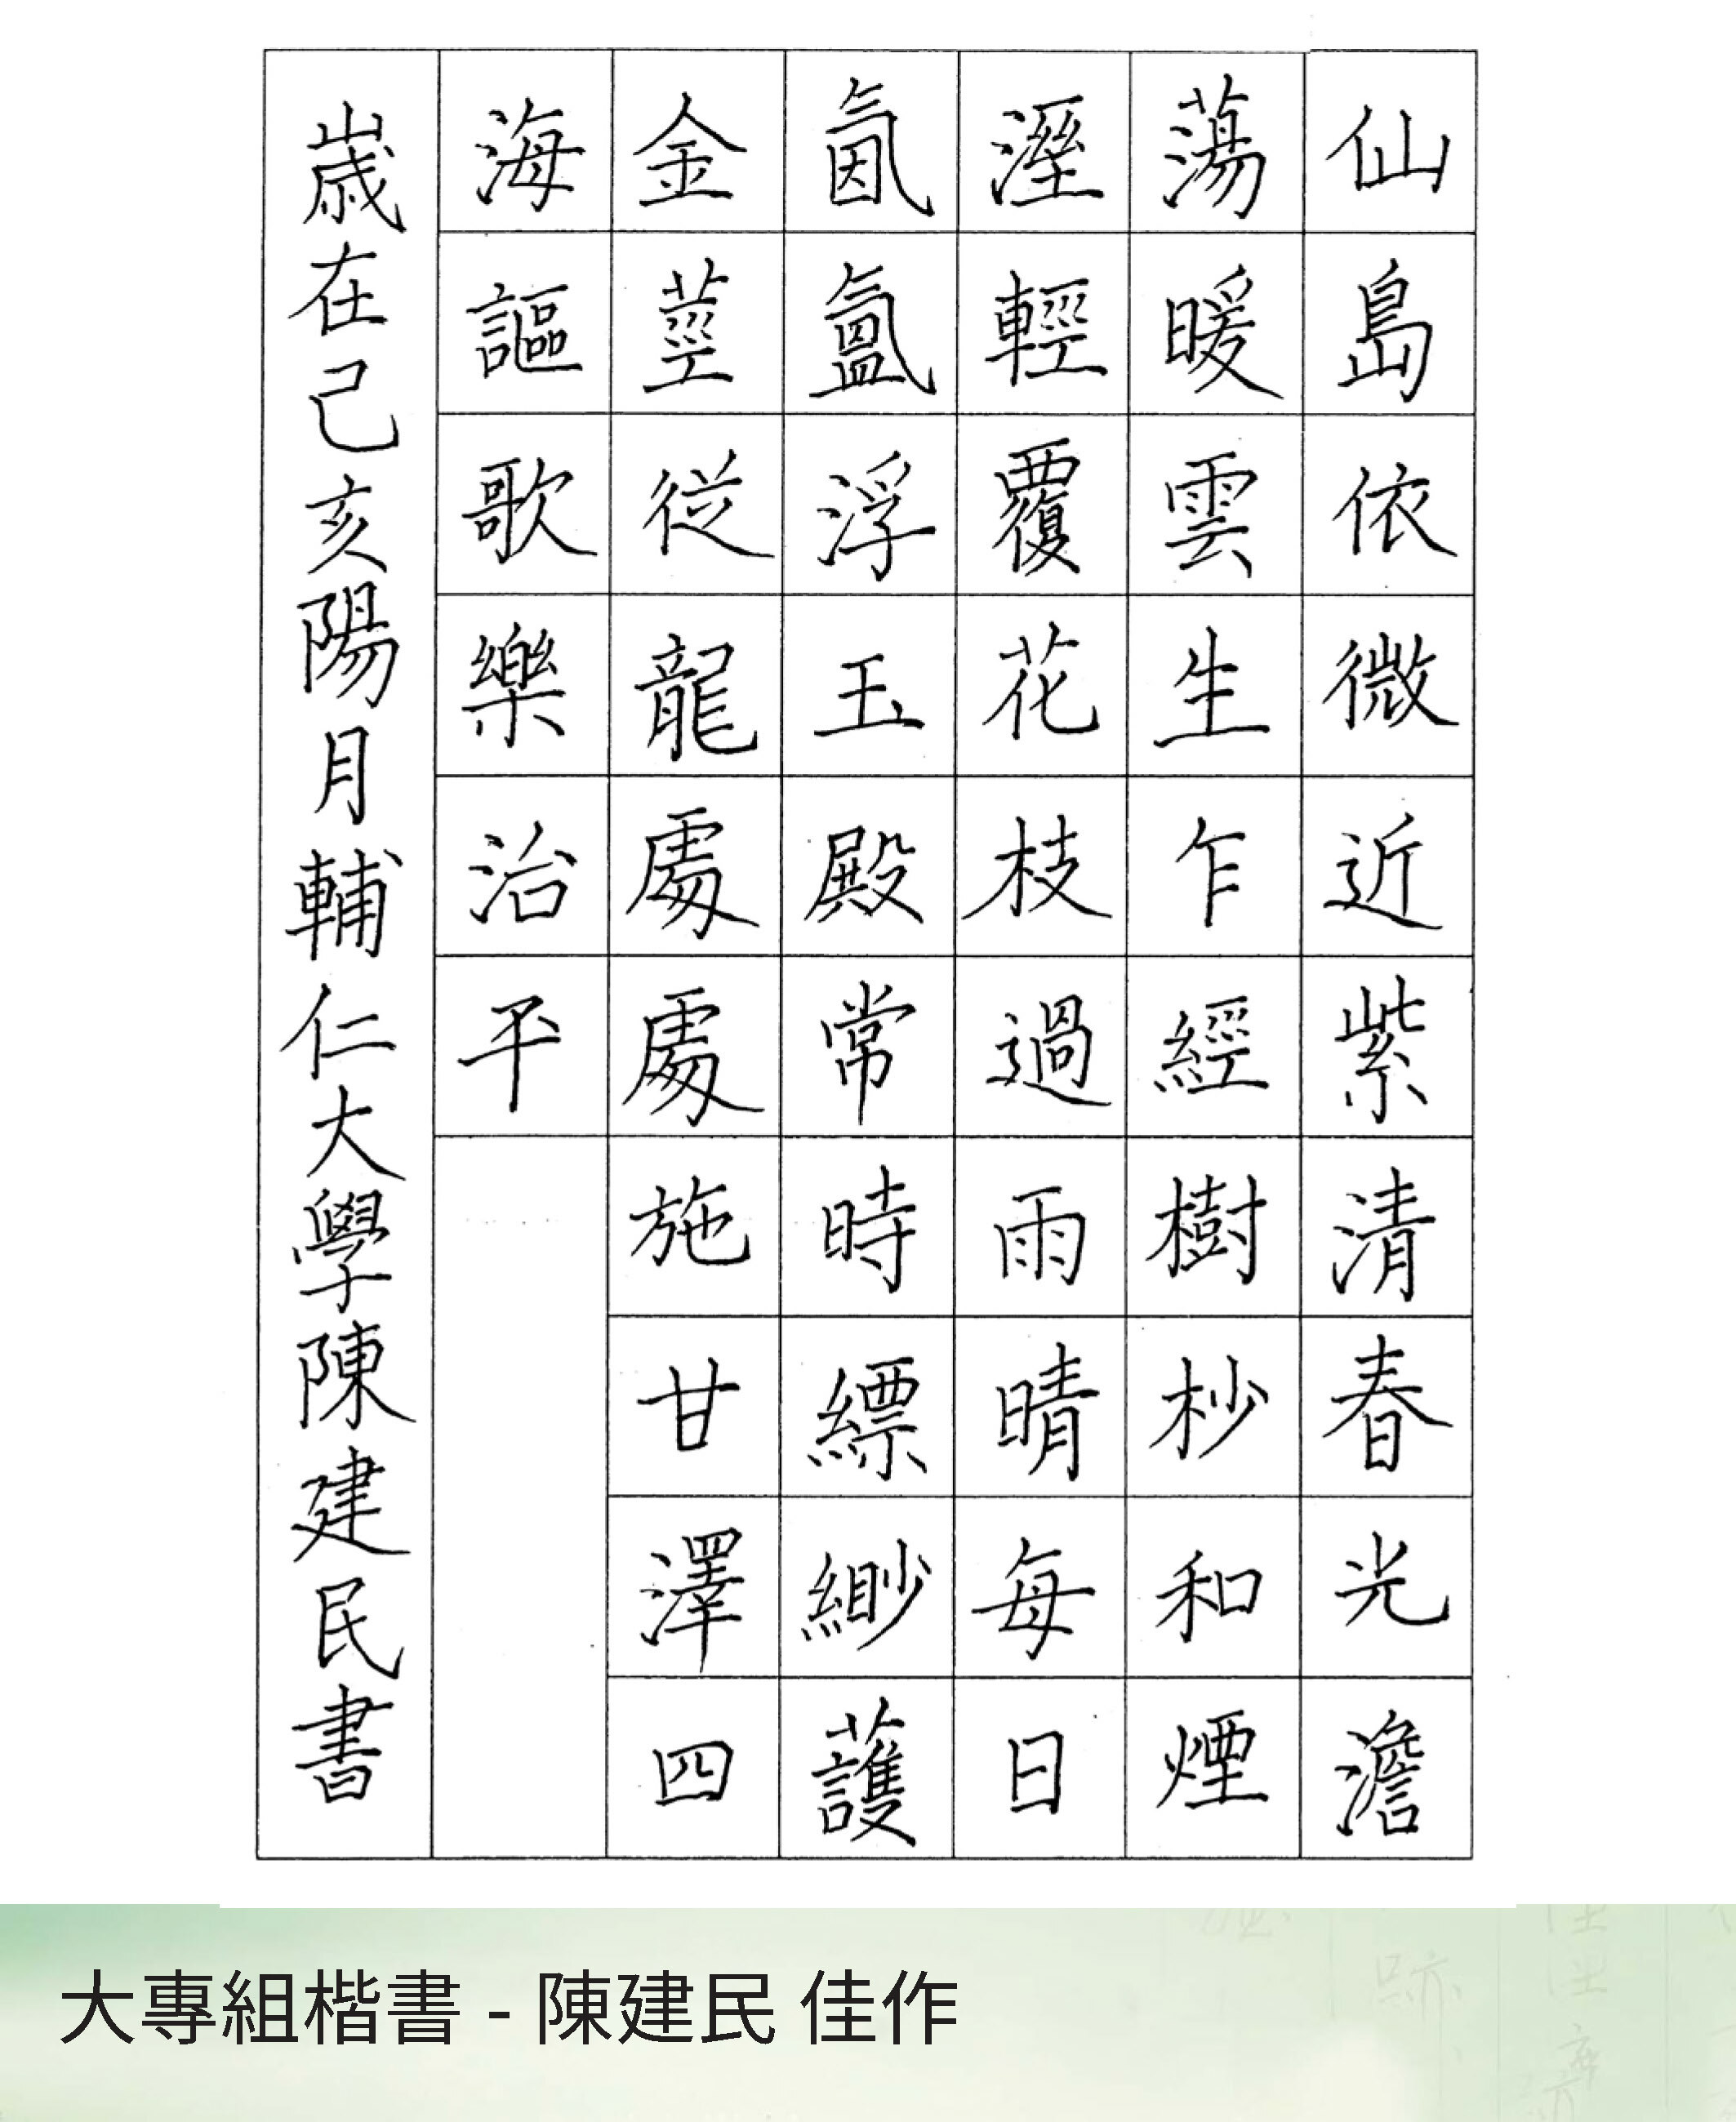 仙島依微近紫清春光澹
蕩暖雲生乍經樹杪和煙
溼輕覆花枝過雨晴每日
氤氳浮玉殿常時縹緲護
金莖從龍處處施甘澤四
海謳歌樂治平
歲在己亥陽月輔仁大學陳建民書
大專組楷書 - 陳建民 佳作